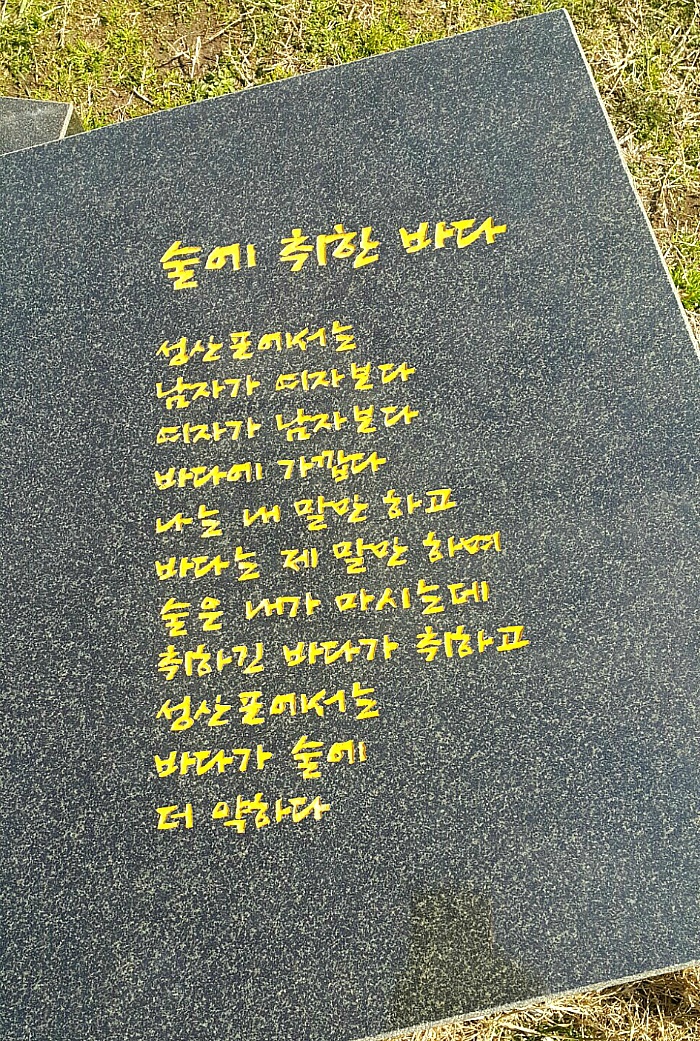 술에 취한 바다
성산포에서는
남자가 여자보다
여자가 남자보다
바다에 가깝다
나는 내 말만 하고
바다는 제 말만 하며
술은 내가 마시는데
취하긴 바다가 취하고
성산포에서는
바다가 술에
더 약하다